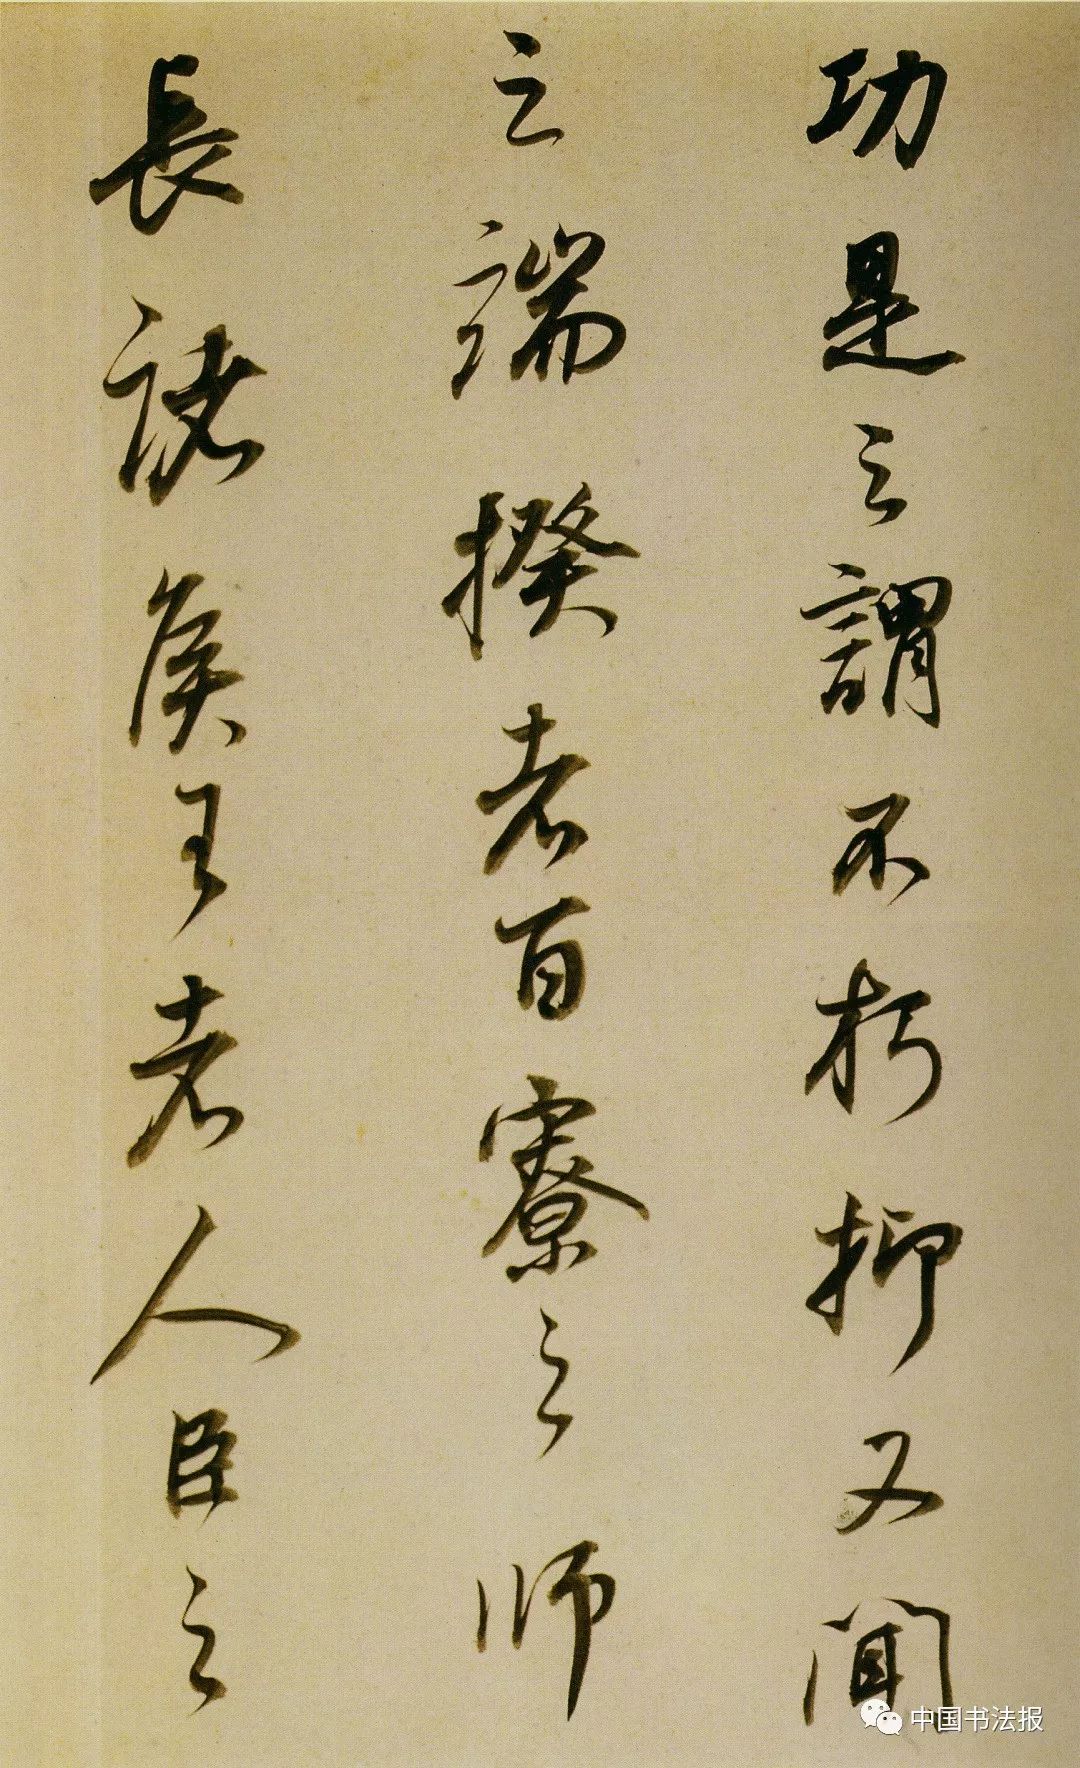 功是之謂不朽抑又聞
之端揆者百寮之師
長諸侯王者人臣之
中国书法报